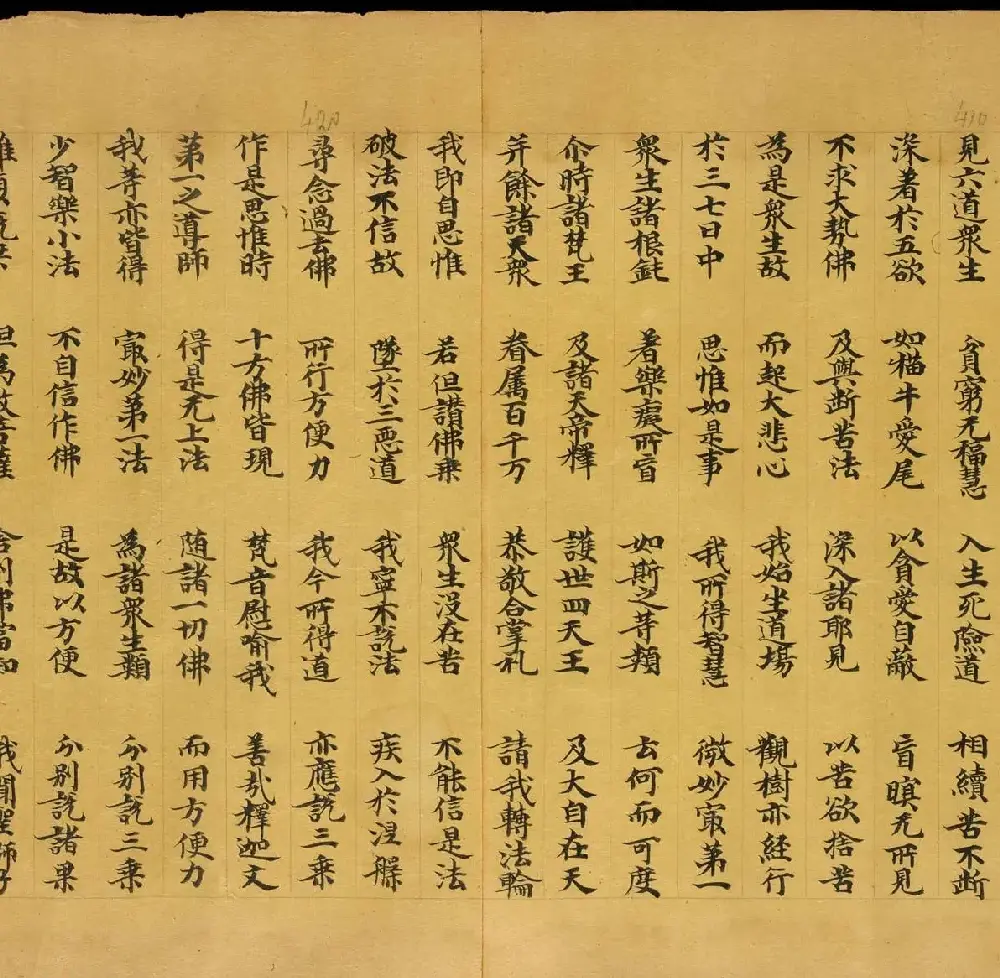 410
見六道衆生 貧窮无福慧 入生死險道 相續苦不断
深著於五欲 如猫牛愛尾 以貪愛自蔽 盲瞑无所見
不求大勢佛 及與断苦法 深入諸耶見 以苦欲捨苦
為是衆生故 而起大悲心 我始坐道場 觀樹亦経行
於三七日中 思惟如是事 我所得智慧 微妙冣第一
衆生諸根鈍 著樂癡所盲 如斯之䓁類 云何而可度
尒時諸梵王 及諸天帝釋 護世四天王 及大自在天
并餘諸天衆 眷属百千万 恭敬合掌礼 請我轉法輪
我即自思惟 若但讃佛乗 衆生没在苦 不能信是法
破法不信故 墜於三𢙣道 我寧不説法 疾入於涅槃
420
尋念過去佛 所行方便力 我今所得道 亦應説三乗
作是思惟時 十方佛皆現 梵音慰喻我 善哉釋迦文
第一之導師 得是无上法 随諸一切佛 而用方便力
我䓁亦皆得 冣妙第一法 為諸衆生類 分別説三乗
少智樂小法 不自信作佛 是故以方便 分別説諸果